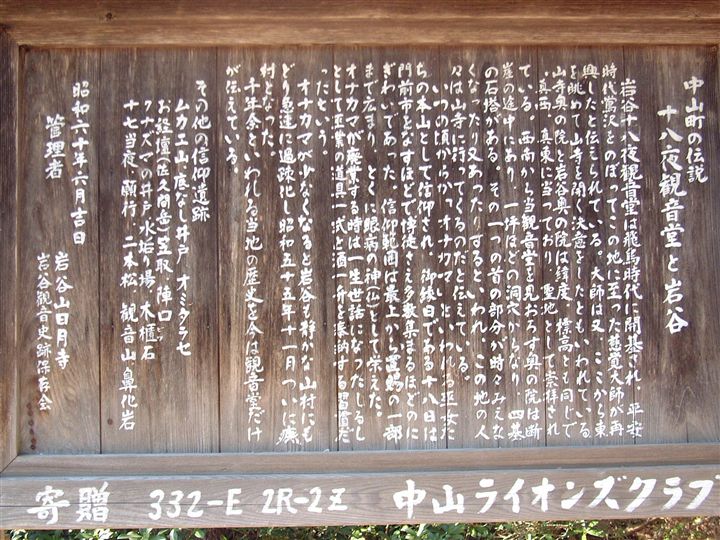 中山町の伝説
十八夜観音堂と岩谷
岩谷十八夜観音堂は飛鳥時代に開基され、平安
時代鶯沢をのぼってこの地に至った慈覚大師が再
興したと伝えられている。大師は又、ここから東
を眺めて山寺を開く決意をしたともいわれている
山寺奥の院と岩谷奥の院は緯度、標高とも同じで
真西、真東に当っており、聖地として崇拝され
ている。西南から当観音堂を見おろす奥の院は断
崖の途中にあり、一坪ほどの洞穴からなり、四基
の石塔がある。その一つの首の部分が時々みえな
くなったり又あったりするといわれ、この地の人
々は山寺に行ってくるのだと伝えている。
いつの頃からかオナカマといわれる巫女た
ちの本山として信仰され、御縁日である十八日は
門前市をなすほどで博徒さえ多数集まるほどのに
ぎわいであった。信仰範囲は最上から置賜の一部
まで広まり、とくに眼病の神(仏)として栄えた。
オナカマが廃業する時は一生世話になったしるし
として生業の道具一式と酒一升を奉納する習慣だ
ったという。
オナカマが少なくなると岩谷も静かな山村にも
どり急速に過疎化し昭和五十五年十一月ついに廃
村となった。
千年余といわれる当地の歴史を今は観音堂だけ
が伝えている。
その他の信仰遺跡
ムカエ山 底なし井戸 オミタラセ
お経壇(佐久間岳) 笠取 陣口
ワナズマの井戸 水垢り場 木櫃石
十七当夜 願行 二本松 観音山 鼻化岩
昭和六十年六月吉日
管理者
岩谷山日月寺
岩谷観音史跡保存会
寄贈 332-E 2R-2Z 中山ライオンズクラブ